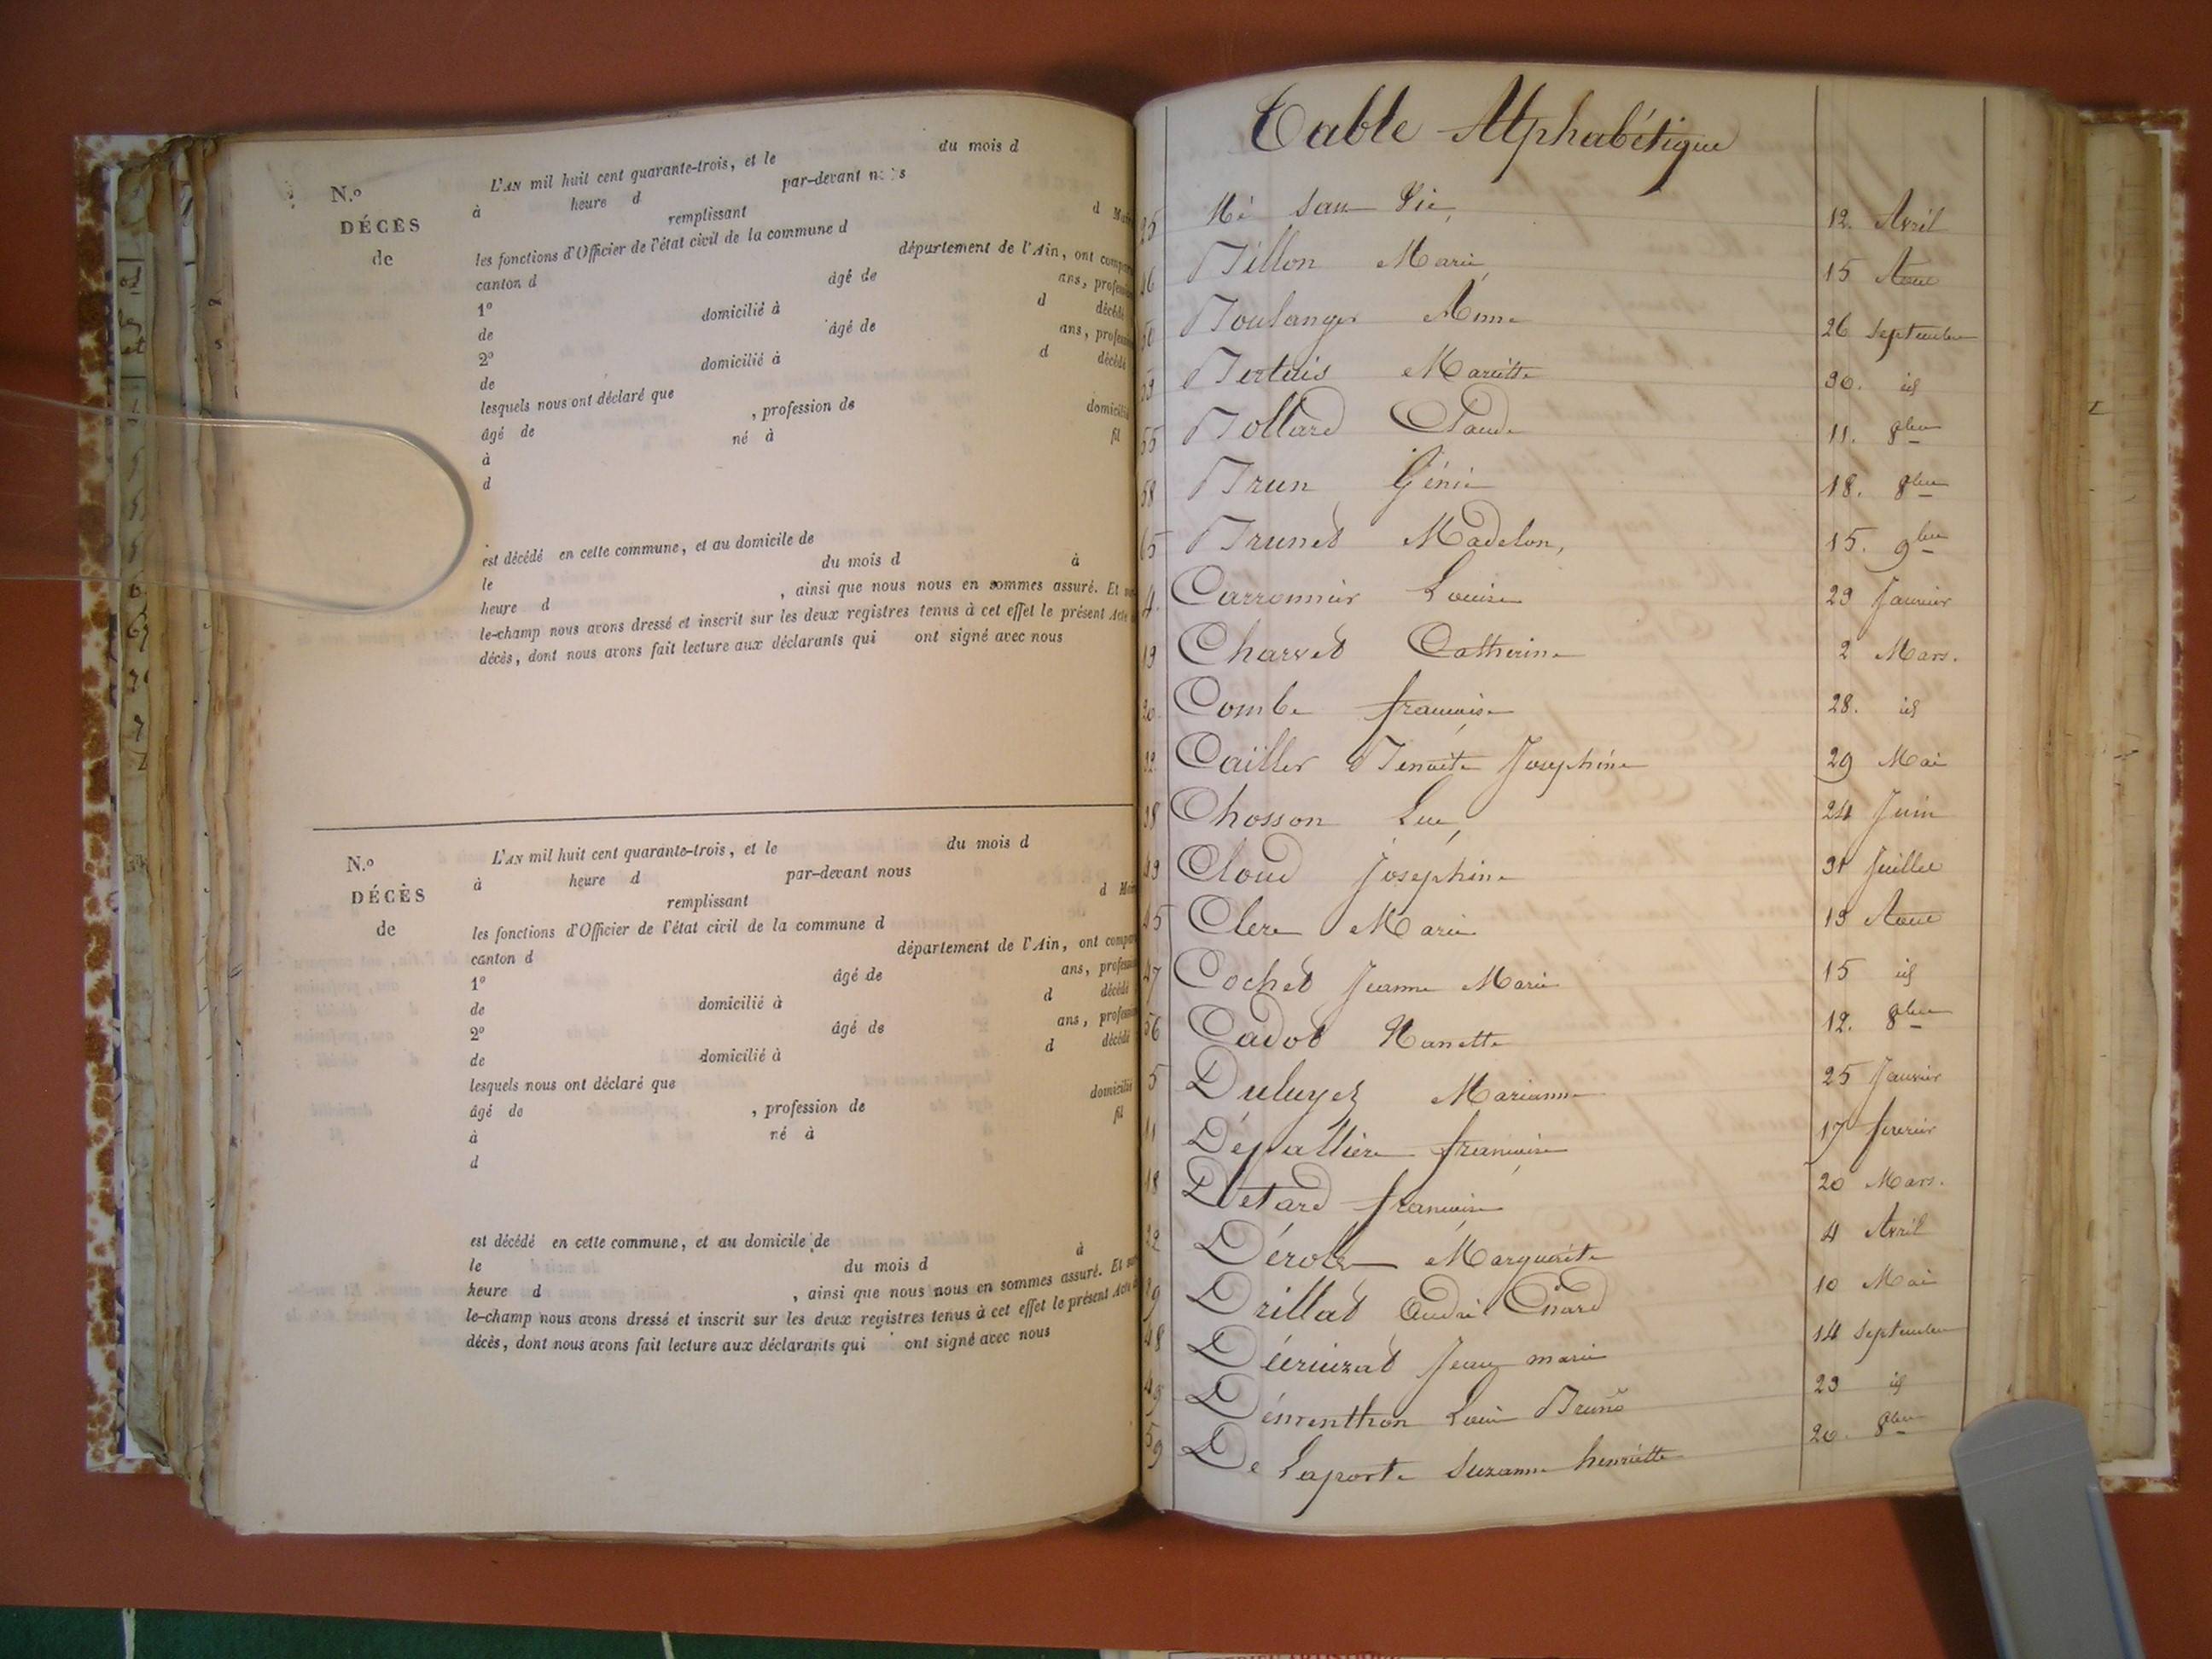 N.º
DÉCÈS
de
L'AN mil huit cent quarante-trois, et le du mois d
à heure d par-devant nous
remplissant d
les fonctions d'Officier de l'état civil de la commune d
canton d département de l'Ain, ont
1º âgé de ans,
de domicilié à d décédé
2º âgé de ans,
de domicilié à d décédé
lesquels nous ont déclaré que
âgé de , profession de
à né à fil
d
est décédé en cette commune, et au domicile de
le du mois d à
heure d , ainsi que nous nous en sommes assuré. Et
le-champ nous avons dressé et inscrit sur les deux registres tenus à cet effet le présent Acte
décès, dont nous avons fait lecture aux déclarants qui ont signé avec nous
N.º
DÉCÈS
de
L'AN mil huit cent quarante-trois, et le du mois d
à heure d par-devant nous
remplissant d
les fonctions d'Officier de l'état civil de la commune d
canton d département de l'Ain, ont
1º âgé de ans,
de domicilié à d décédé
2º âgé de ans,
de domicilié à d décédé
lesquels nous ont déclaré que
âgé de , profession de
à né à fil
d
est décédé en cette commune, et au domicile de
le du mois d à
heure d , ainsi que nous nous en sommes assuré. Et
le-champ nous avons dressé et inscrit sur les deux registres tenus à cet effet le présent Acte
décès, dont nous avons fait lecture aux déclarants qui ont signé avec nous
Table Alphabétique
25 Né sans Vie, 12. Avril
Billon Marie 15 Aout
Boulanger Anne 26 Septembre
Bertuis Mariette 30. id
55 Bollard Claude 11. 8bre
58 Brun Génie 18. 8bre
65 Brunet Madelon, 15. 9bre
Carronnier Louise 29 Janvier
19 Charvet Catherine 2 Mars.
20 Combe françoise 28. id
32 Cailler Benoite Josephine 29 Mai
38 Chosson Luc, 24 Juin
Cloud Josephine 31 Juillet
45 Clerc Marie 13 Aout
47 Cochet Jeanne Marie 15 id
56 Cadot Nanette 12. 8bre
5 Duluyet Marianne 25 Janvier
11 Dépallière françoise 17 fevrier
18 Détard françoise 20 Mars.
22 Dérole Marguerite 4 Avril
Drillat André 10 Mai
48 Jean marie 14 Septembre
49 Démenthon Louis Bruno 23 id
59 De Laporte Suzanne henriette 20. 8bre